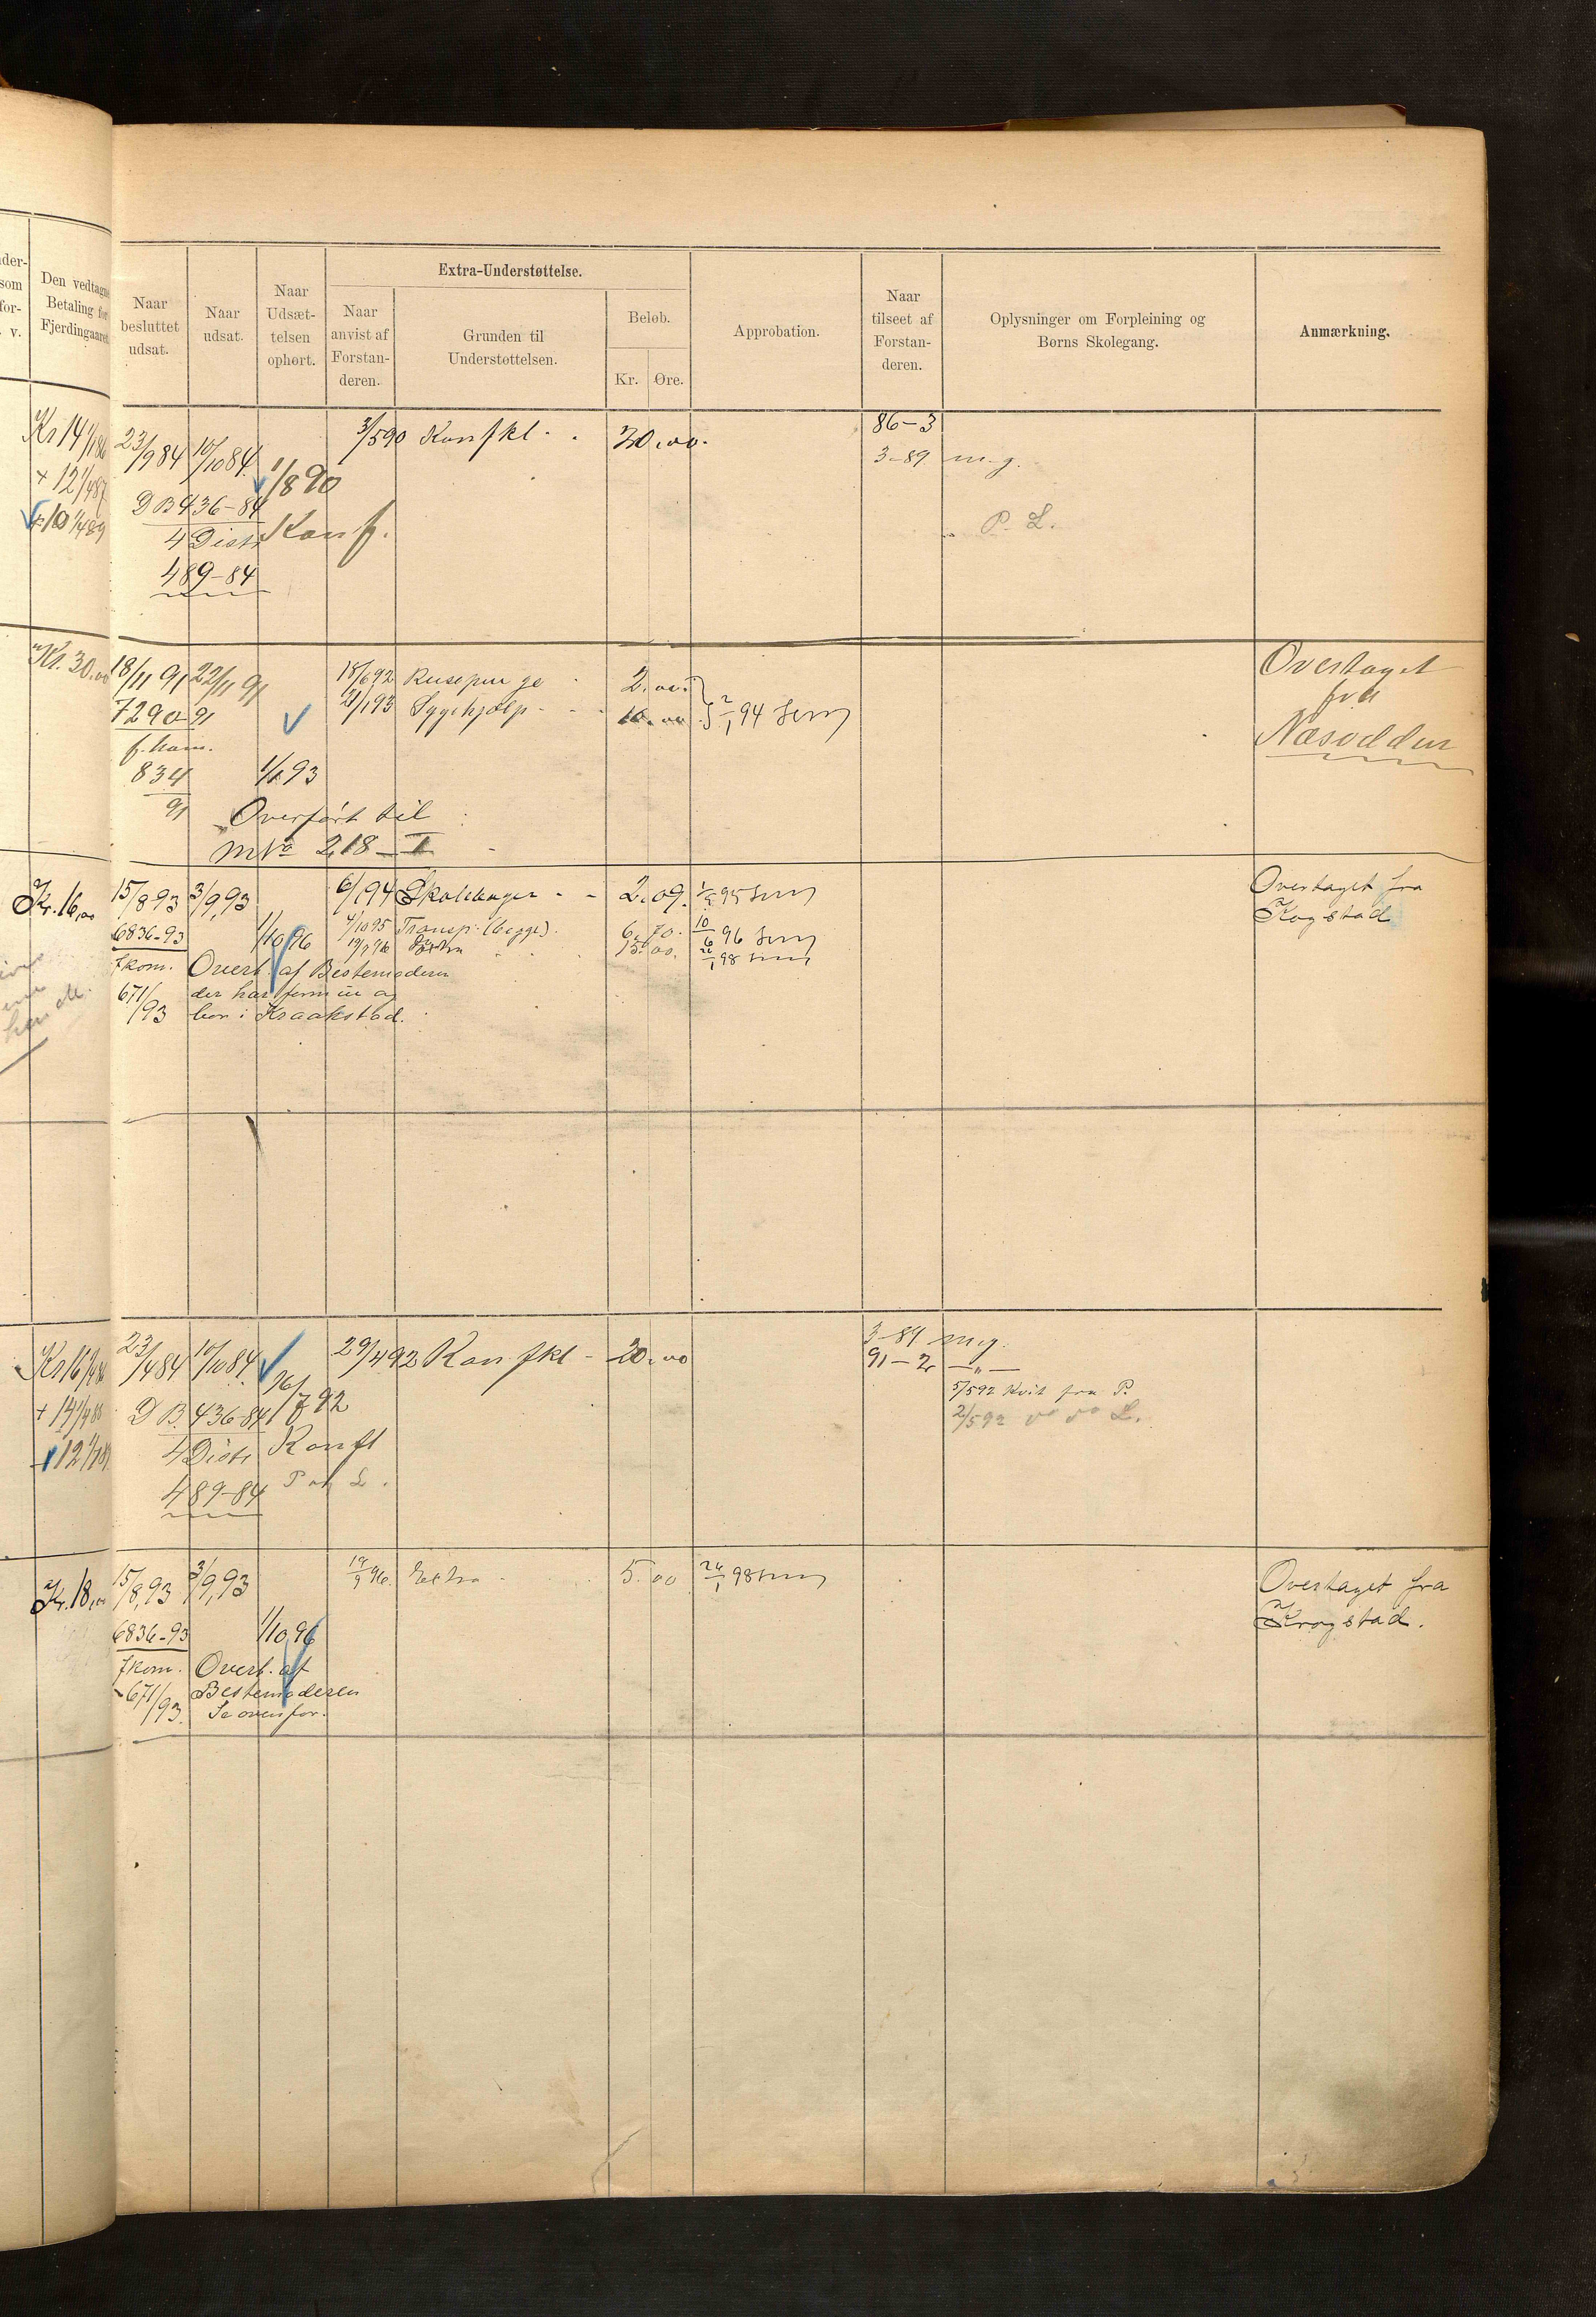 der-
som
for-
v.
Den vedtagne
Betaling for
Fjerdingaaret
Naar
besluttet
udsat.
Naar
udsat.
Naar
Udsæt-
telsen
ophørt.
Extra-Understøttelse.
Naar
anvist af
Forstan-
deren.
Grunden til
Understøttelsen.
Beløb.
Kr. Øre.
Approbation.
Naar
tilseet af
Forstan-
deren.
Oplysninger om Forpleining og
Børns Skolegang.
Anmærkning.
Kr 14 1/1 86
+ 12 1/4 87
+ 10 1/4 89
23/9 84 10/10 84
DB 436-84
4 Distr
489-84
1/8 90
Konf.
3/5 90 Konfkl - . 30.00.
86-3
3-89 m.g.
P. L.
Kr. 30.00
18/11 91 22/11 91
7290-91
f. kom.
834
91
1/1 93
Overført til
No 218-I
18/6 92 Reisepenge 2.00.
21/1 93 Sygehjælp - 10.00. 2/1 94
Overtaget
fra
Næsodden
Kr. 16,00
15/8 93 3/9, 93
6836-93
fkom.
671/93
1/10 96
Overt. af Bestemoderen
der har fem m og
bor i Kraakstad.
6/1 94 2.09.
4/10 95 Transp. (begge). 6.70. 10/6 96
19/9 96 Extra 15.00. 26/1 98
Overtaget fra
Kogstad
Kr 16 1/4 86
+ 14 1/4 88
+ 12 1/1 89
23/9 84 10/10 84
DB. 436-84
4 Distr
489-84
16/7 92
Konft
P og L.
29/4 92 Konfkl - 20.00
3-89 m.g.
91-2 -"-
5/5 92 Kvit fra P.
2/5 92 L.
Kr. 18,00
15/8, 93 3/9, 93
6836-93
fkom.
671/93.
1/10 96
Overt. af
Bestemoderen
Se ovenfor.
19/9 96. Extra 5.00 26/1 98
Overtaget fra
Krogstad.